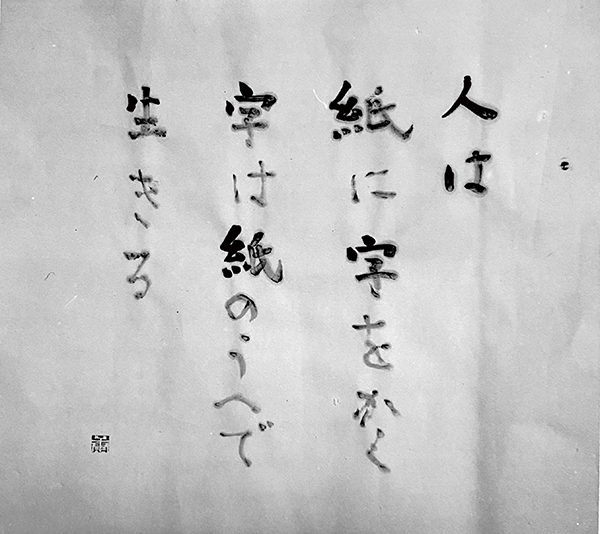 人は
紙に字をかく
字は紙のうへで
生きる